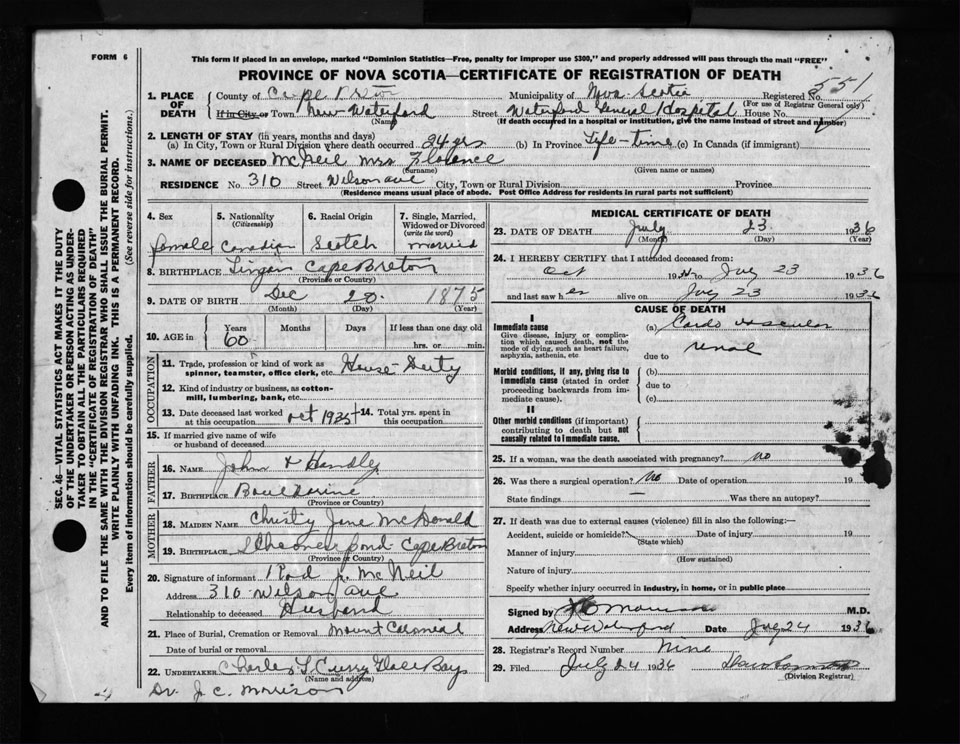 FORM 6
This form if placed in an envelope, marked "Dominion Statistics—Free, penalty for improper use $300," and properly addressed will pass through the mail "FREE"
PROVINCE OF NOVA SCOTIA—CERTIFICATE OF REGISTRATION OF DEATH
551
1. PLACE OF DEATH
County of Cape Breton Municipality of Nova Scotia Registered No.
(For use of Registrar General only)
If in City or Town New Waterford Street Waterford General Hospital House No.
(Name) (If death occurred in a hospital or institution, give the name instead of street and number)
2. LENGTH OF STAY (in years, months and days)
(a) In City, Town or Rural Division where death occurred 24 yrs (b) In Province Life-time (c) In Canada (if immigrant)
3. NAME OF DECEASED McNeil Mrs Florence
(Surname) (Given name or names)
RESIDENCE No. 310 Street Wilson ave City, Town or Rural Division Province
(Residence means usual place of abode. Post Office Address for residents in rural parts not sufficient)
4. Sex
female
5. Nationality
(Citizenship)
Canadian
6. Racial Origin
Scotch
7. Single, Married, Widowed or Divorced
(write the word)
married
8. BIRTHPLACE Lingan Cape Breton
(Province or Country)
9. DATE OF BIRTH Dec 20 1875
(Month) (Day) (Year)
10. AGE in
Years Months Days If less than one day old
60 hrs. or min.
OCCUPATION
11. Trade, profession or kind of work as spinner, teamster, office clerk, etc. House-Duty
12. Kind of industry or business, as cotton-mill, lumbering, bank, etc.
13. Date deceased last worked at this occupation Oct 1935
14. Total yrs. spent in this occupation
15. If married give name of wife or husband of deceased
FATHER
16. NAME John Handley
17. BIRTHPLACE
(Province or Country)
MOTHER
18. MAIDEN NAME Christy Jane McDonald
19. BIRTHPLACE Pond Cape Breton
(Province or Country)
20. Signature of informant Rod J. McNeil
Address 310 Wilson ave
Relationship to deceased Husband
21. Place of Burial, Cremation or Removal Mount
Date of burial or removal
22. UNDERTAKER Charles Curry Glace Bay
(Name and address)
Dr. J. C. Morrison
MEDICAL CERTIFICATE OF DEATH
23. DATE OF DEATH July 23 1936
(Month) (Day) (Year)
24. I HEREBY CERTIFY that I attended deceased from:
Oct 19 to July 23 1936
and last saw h er alive on July 23 1936
CAUSE OF DEATH
I
Immediate cause
Give disease, injury or complication which caused death, not the mode of dying, such as heart failure, asphyxia, asthenia, etc
(a) Cardo vascular
due to renal
Morbid conditions, if any, giving rise to immediate cause (stated in order proceeding backwards from immediate cause).
(b)
due to
(c)
II
Other morbid conditions (if important) contributing to death but not causally related to immediate cause.
25. If a woman, was the death associated with pregnancy? No
26. Was there a surgical operation? No Date of operation 19
State findings Was there an autopsy?
27. If death was due to external causes (violence) fill in also the following:—
Accident, suicide or homicide? Date of injury 19
(State which)
Manner of injury
(How sustained)
Nature of injury
Specify whether injury occurred in industry, in home, or in public place
Signed by J C Morrison M.D.
Address New Waterford Date July 24 1936
28. Registrar's Record Number Nine
29. Filed July 24 1936
(Division Registrar)
SEC. 46—VITAL STATISTICS ACT MAKES IT THE DUTY
OF THE UNDERTAKER OR PERSON ACTING AS UNDER-
TAKER TO OBTAIN ALL THE PARTICULARS REQUIRED
IN THE "CERTIFICATE OF REGISTRATION OF DEATH"
AND TO FILE THE SAME WITH THE DIVISION REGISTRAR WHO SHALL ISSUE THE BURIAL PERMIT.
WRITE PLAINLY WITH UNFADING INK. THIS IS A PERMANENT RECORD.
Every item of information should be carefully supplied. (See reverse side for instructions.)